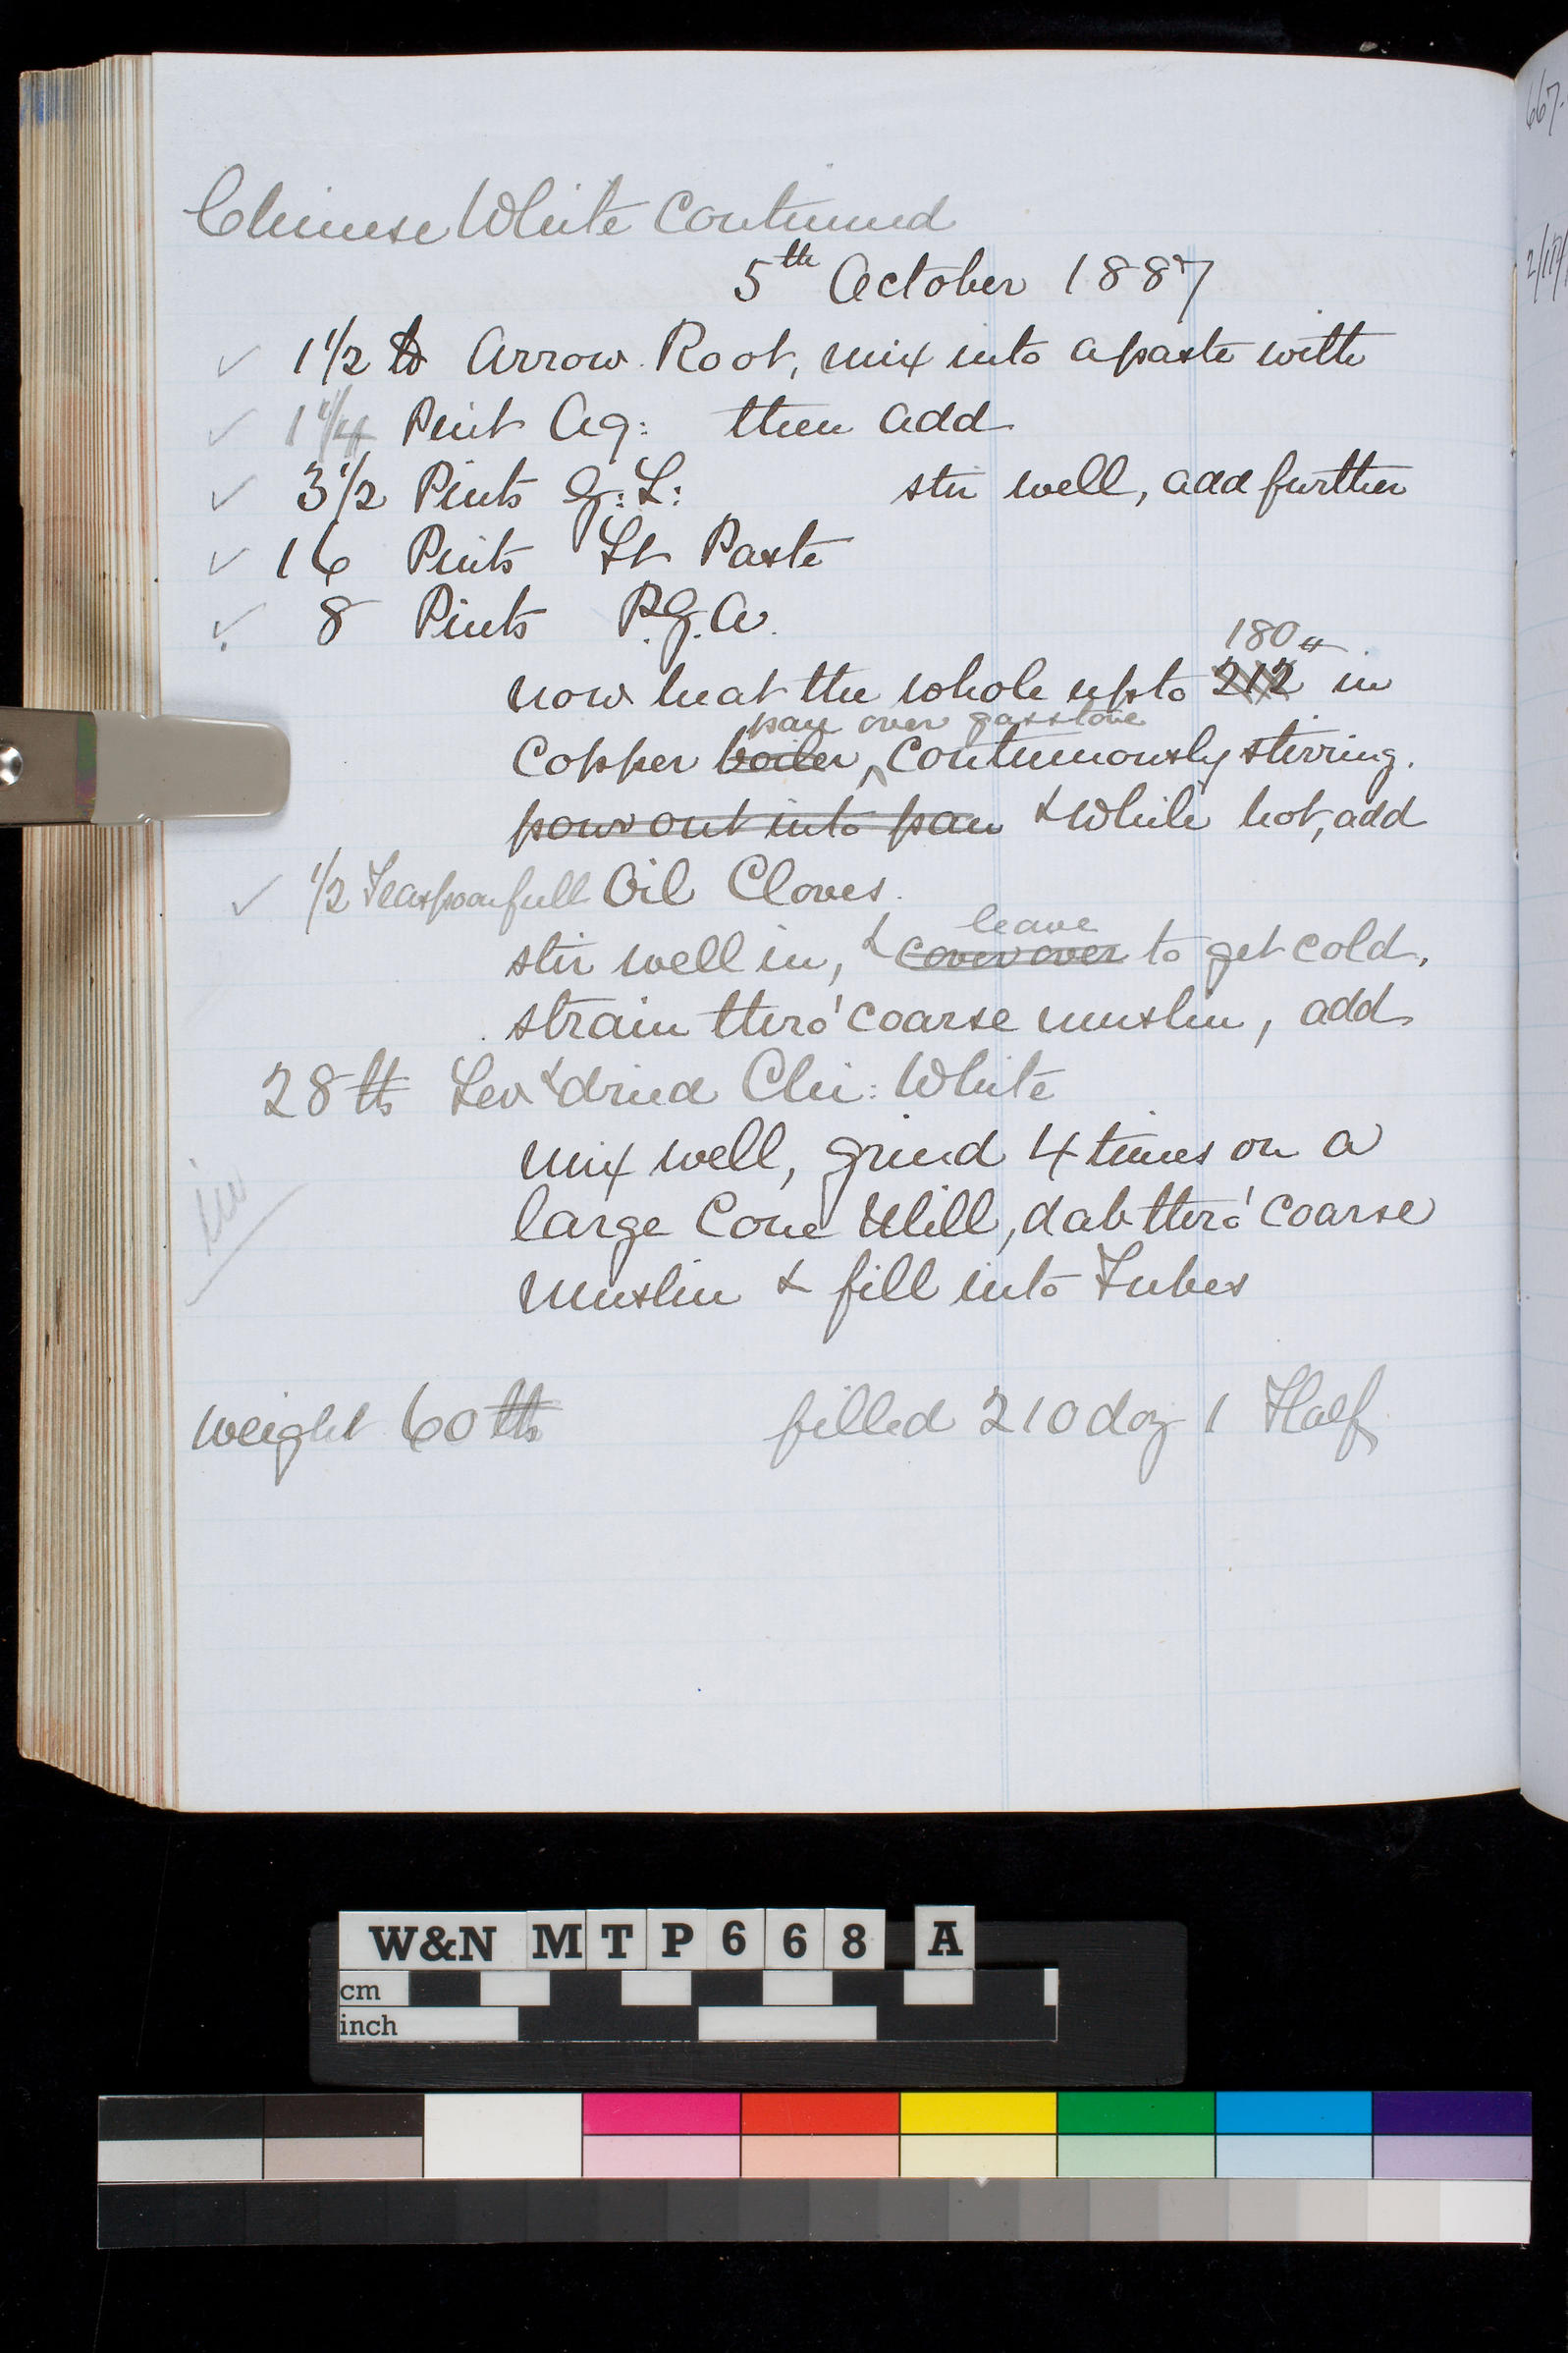 Chinese White Continued
5th October 1887
✓ 1 1/2 lb Arrow Root, mix into a paste with
✓ 1 1/4 Pint Aq: then add
✓ 3 1/2 Pints G:L: stir well, add further
✓ 16 Pints St Paste
✓ 8 Pints P.G.A.
180
now heat the whole up to 212 in
pan over gasstove
Copper boiler, continuously stirring.
pour out into pan & while hot, add
✓ 1/2 Teaspoonfull Oil Cloves.
leave
stir well in, & cover over to get cold,
strain thro' coarse muslin, add
28 lb Lev & dried Chi: White
mix well, grind 4 times on a
large Cone Mill, dab thro' coarse
muslin & fill into Tubes
weight 60 lb filled 210 doz 1 Half
667
W&N MTP668 A
cm
inch